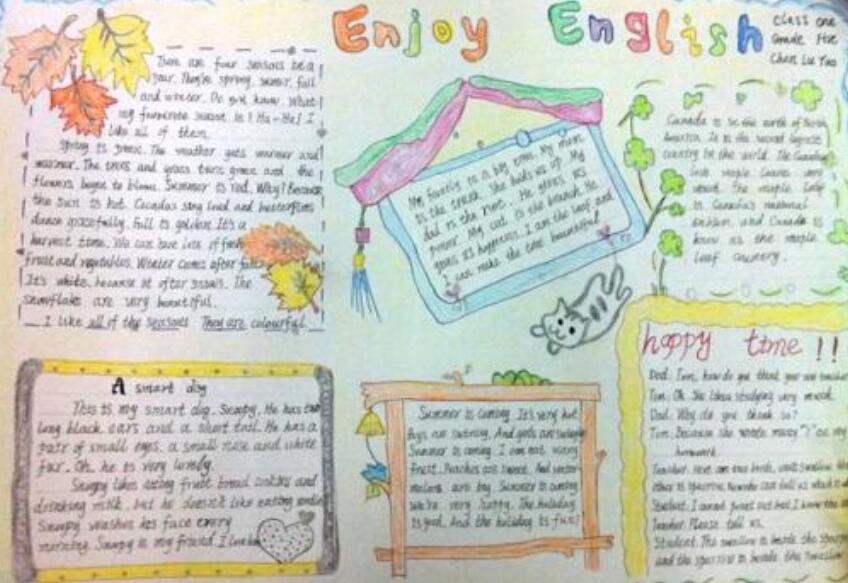 Enjoy English
Class one
Grade Five
Chen Lu Yao
There are four seasons in a
year. They're spring, summer, fall
and winter. Do you know. What's
my favourite season is? Ha-Ha! I
like all of them.
Spring is green. The weather gets warmer and
warmer. The trees and grass turn green and the
flowers begin to bloom. Summer is red. Why? Because
the sun is hot. Cicadas sing loud and butterflies
dance gracefully. Fall is golden. It's a
harvest time. We can have lots of fresh
fruit and vegetables. Winter comes after fall.
It's white, because it often snows. The
snowflake are very beautiful.
I like all of the seasons They are colourful.
My family is a big tree. My mum
is the trunk. She holds us up. My
dad is the root. He gives us
power. My cat is the branch. He
gives us happiness. I am the leaf and
I can make the tree beautiful
Canada is in the north of North
America. It is the second largest
country in the world. The Canadian
love maple leaves very
much. The maple leaf
is Canada's national
emblem, and Canada is
know as the maple
leaf country.
A smart dog
This is my smart dog. Snoopy. He has two
long black ears and a short tail. He has a
pair of small eyes, a small nose and white
fur. Oh, he is very lovely.
Snoopy likes eating fruit bread cookies and
drinking milk. but he doesn't like eating
Snoopy washes his face every
morning. Snoopy is my friend. I love him
Summer is coming. It's very hot
Boys are swimming. And girls are
Summer is coming. I can eat many
fruit. Peaches are sweet. And water-
melons are big. Summer is coming
we're very happy. The holiday
is good. And the holiday is fun!
happy time !!
Dad: Tom, how do you think your new teacher
Tom: Oh. She likes studying very much.
Dad: Why do you think so?
Tom: Because she wrote many "?" on my
homework.
Teacher: Here are two birds, one's swallow the
other is sparrow. Now who can tell us which is
Student: I cannot point out but I know the
Teacher: Please tell us.
Student: The swallow is beside the sparrow
and the sparrow is beside the swallow